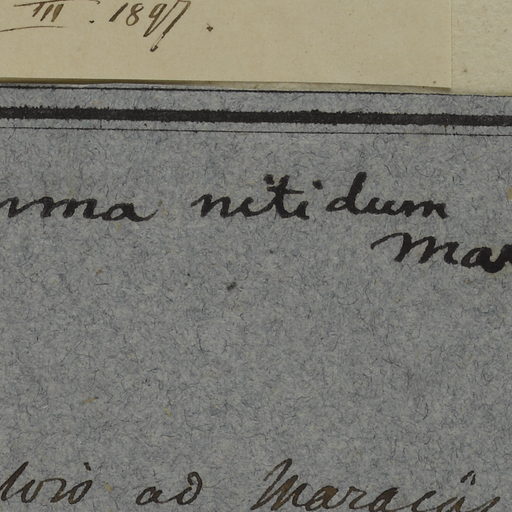 III. 1897.
nma nitidum
Mar
ad Maracás